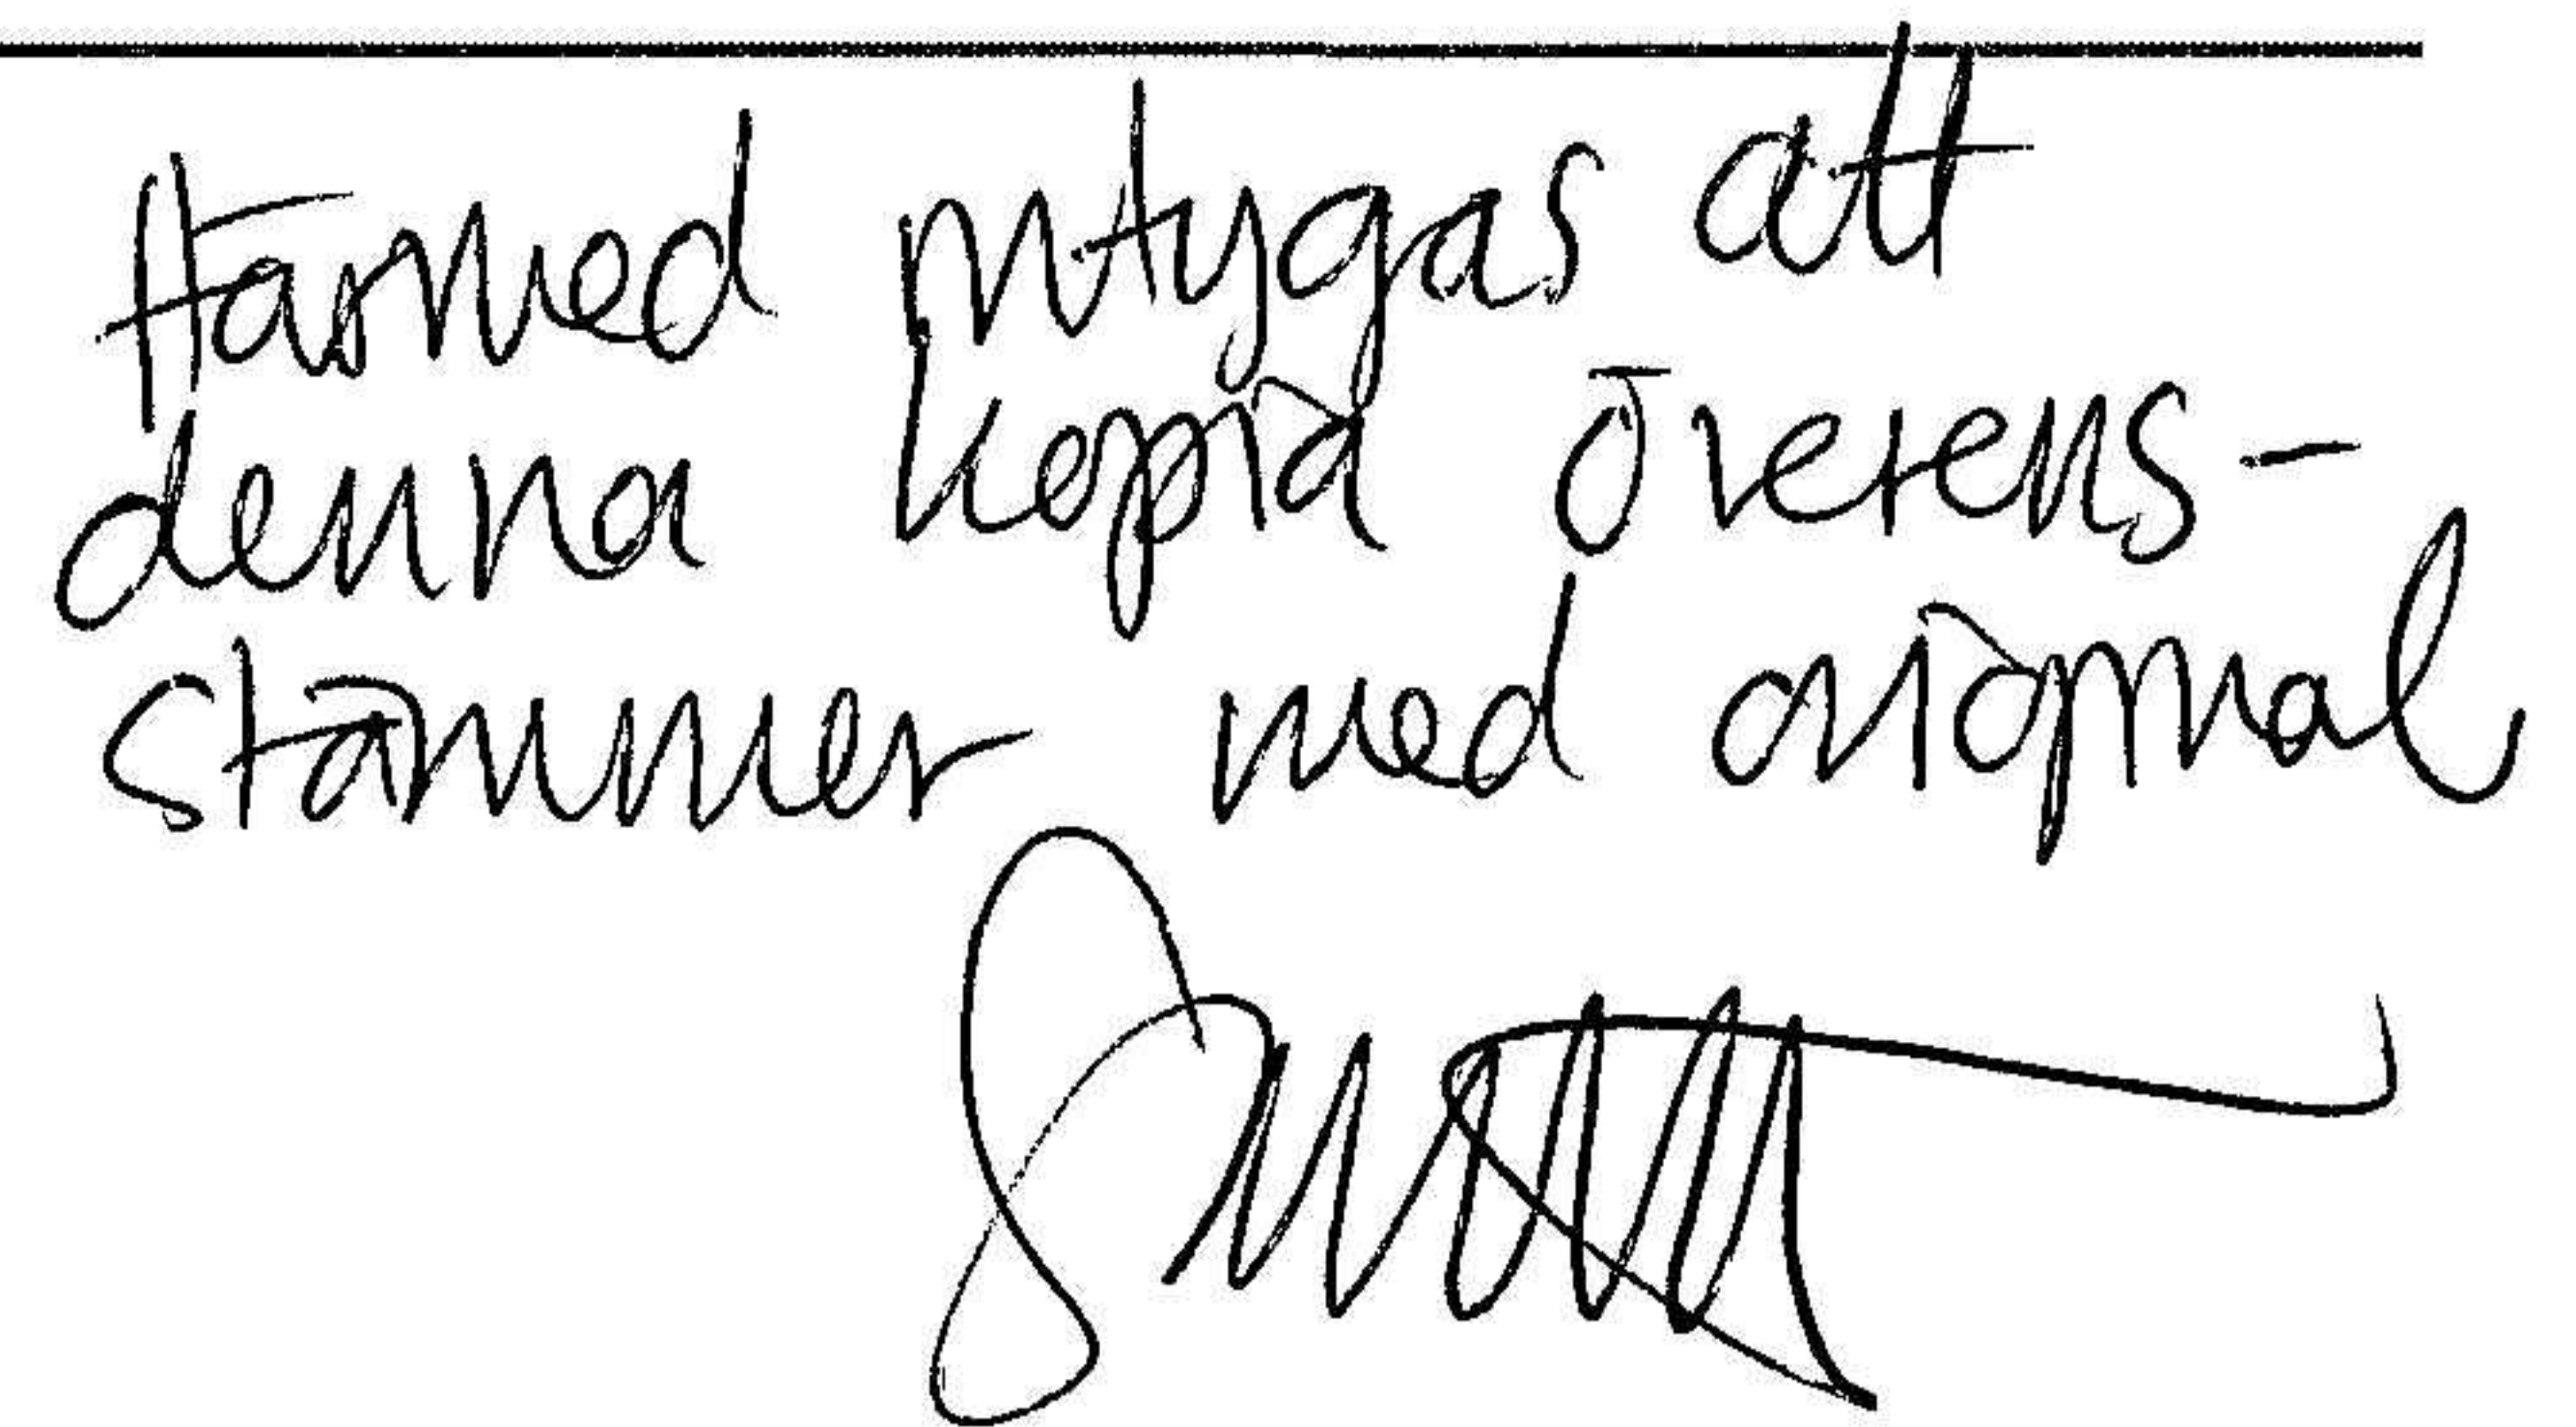 Härmed intygas att
denna kopia överens-
stämmer med original